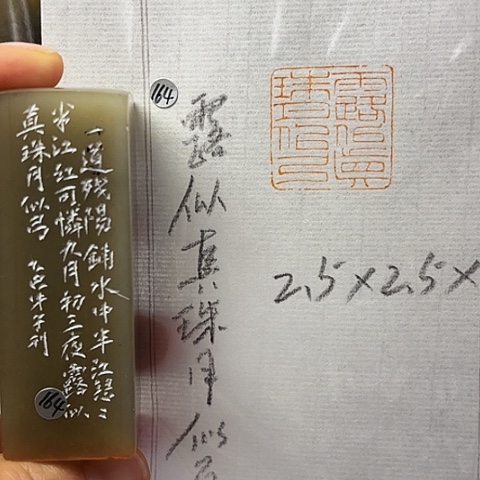 一道残陽鋪水中半江瑟〻
半江红可憐九月初三夜露似
真珠月似弓
164
164
露似真珠月似弓
2.5×2.5×